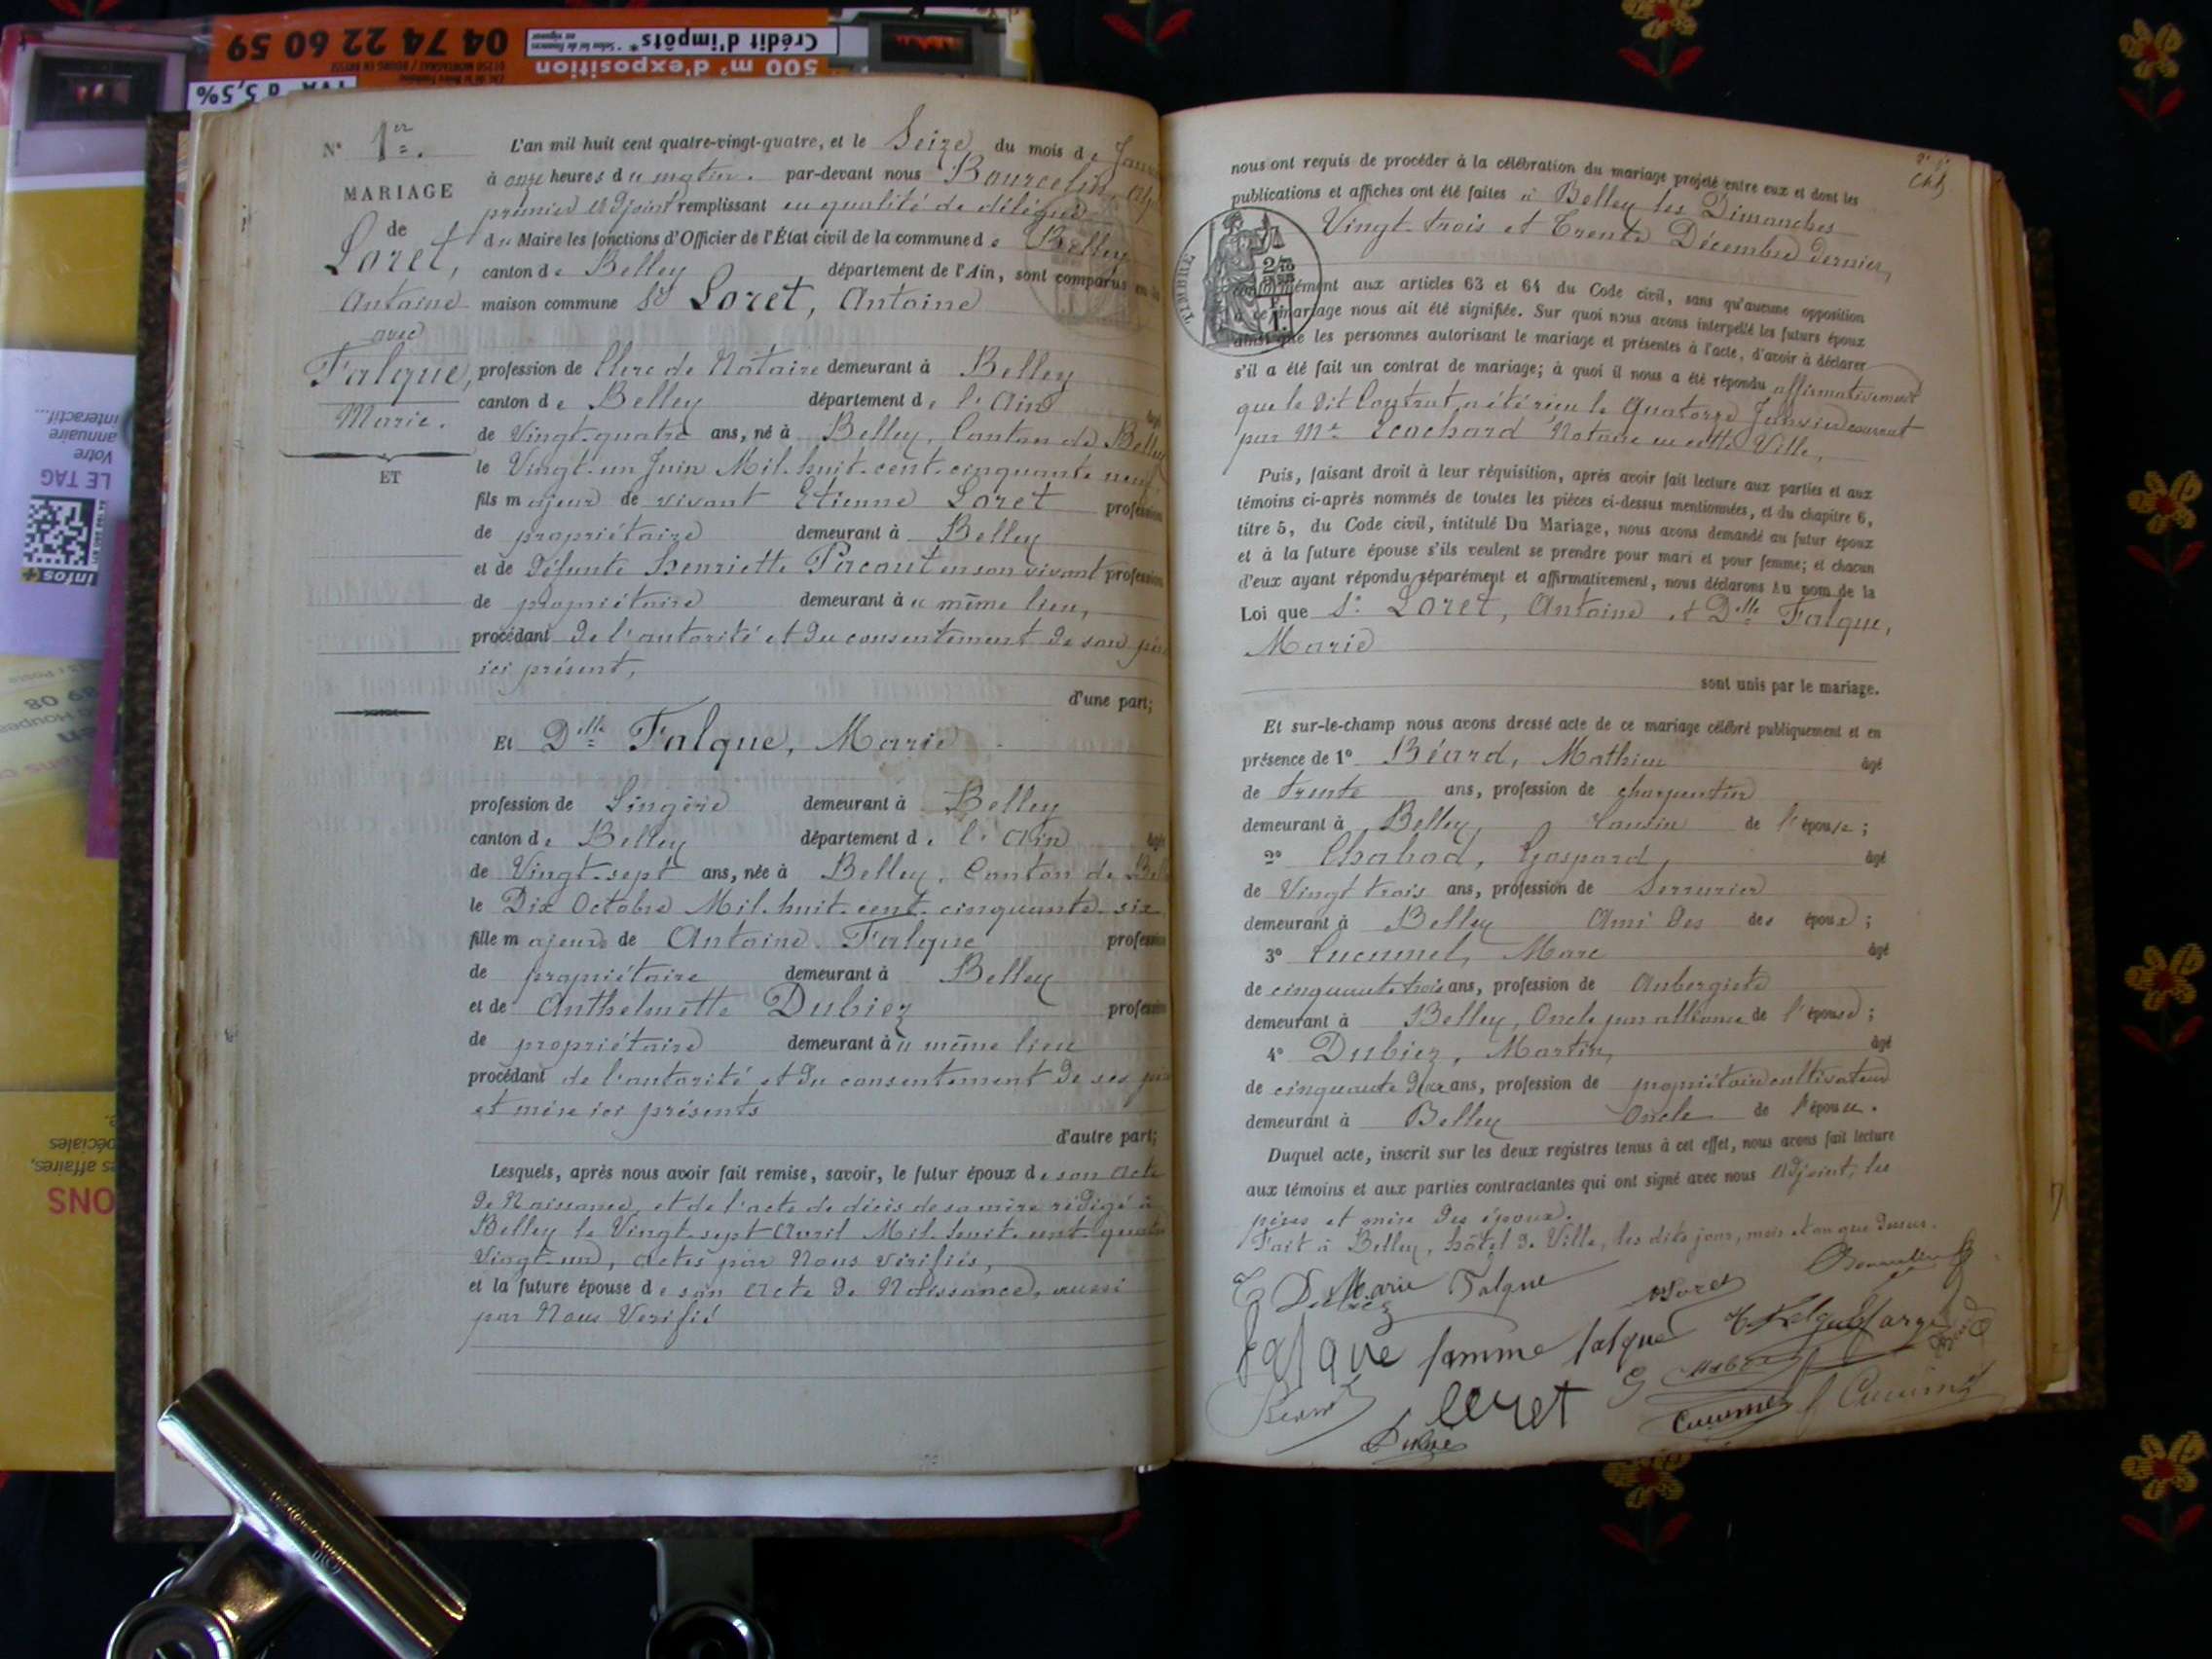 04 74 22 60 59
Crédit d'impôts*
500 m² d'exposition
TVA à 5,5%
N° 1er.
MARIAGE
de
Loret,
Antoine
avec
Falque,
Marie.
ET
L'an mil huit cent quatre-vingt-quatre, et le Seize du mois de
à onze heures du matin. par-devant nous
premier adjoint remplissant en qualité de délégué
du Maire les fonctions d'Officier de l'État civil de la commune de Belley
canton de Belley département de l'Ain, sont comparus en la
maison commune Sr Loret, Antoine
profession de Clerc de Notaire demeurant à Belley
canton de Belley département de l'Ain âgé
de Vingt-quatre ans, né à Belley, Canton de Belley
le Vingt-un Juin Mil-huit-cent-cinquante neuf,
fils majeur de vivant Etienne Loret profession
de propriétaire demeurant à Belley
et de défunte Henriette Pacout en son vivant profession
de propriétaire demeurant au même lieu,
procédant de l'autorité et du consentement de son père
ici présent,
d'une part;
Et Dlle Falque, Marie
profession de Lingère demeurant à Belley
canton de Belley département de l'Ain âgée
de Vingt-sept ans, née à Belley, Canton de Bell
le Dix Octobre Mil-huit-cent-cinquante-six
fille majeure de Antoine Falque profession
de propriétaire demeurant à Belley
et de Anthelmette Dubiez profession
de propriétaire demeurant au même lieu
procédant de l'autorité et du consentement de ses père
et mère ici présents
d'autre part;
Lesquels, après nous avoir fait remise, savoir, le futur époux de son acte
de Naissance, et de l'acte de décès de sa mère rédigé à
Belley le Vingt-sept Avril Mil-huit-cent-quatre
Vingt-un, actes par Nous vérifiés,
et la future épouse de son acte de Naissance, aussi
par Nous Vérifié
nous ont requis de procéder à la célébration du mariage projeté entre eux et dont les
publications et affiches ont été faites à Belley les Dimanches
Vingt-trois et Trente Décembre dernier,
TIMBRE
conformément aux articles 63 et 64 du Code civil, sans qu'aucune opposition
à ce mariage nous ait été signifiée. Sur quoi nous avons interpellé les futurs époux
ainsi que les personnes autorisant le mariage et présentes à l'acte, d'avoir à déclarer
s'il a été fait un contrat de mariage; à quoi il nous a été répondu affirmativement
que le dit Contrat a été reçu le Quatorze Janvier courant
par Me Notaire en cette Ville,
Puis, faisant droit à leur réquisition, après avoir fait lecture aux parties et aux
témoins ci-après nommés de toutes les pièces ci-dessus mentionnées, et du chapitre 6,
titre 5, du Code civil, intitulé Du Mariage, nous avons demandé au futur époux
et à la future épouse s'ils veulent se prendre pour mari et pour femme; et chacun
d'eux ayant répondu séparément et affirmativement, nous déclarons Au nom de la
Loi que Sr Loret, Antoine et Dlle Falque,
Marie
sont unis par le mariage.
Et sur-le-champ nous avons dressé acte de ce mariage célébré publiquement et en
présence de 1° Béard, Mathieu âgé
de trente ans, profession de charpentier
demeurant à Belley, Cousin de l'épouse;
2° Chabod, Gaspard, âgé
de Vingt trois ans, profession de Serrurier
demeurant à Belley Ami des des époux;
3° Cucumel, Marc âgé
de cinquante trois ans, profession de Aubergiste
demeurant à Belley, Oncle par alliance de l'épouse;
4° Dubiez, Martin, âgé
de cinquante deux ans, profession de propriétaire cultivateur
demeurant à Belley Oncle de l'épouse.
Duquel acte, inscrit sur les deux registres tenus à cet effet, nous avons fait lecture
aux témoins et aux parties contractantes qui ont signé avec nous adjoint, les
pères et mère des époux.
Fait à Belley, hôtel de Ville, les dits jour, mois et an que dessus.
Marie Falque
Falque famme falque
Loret